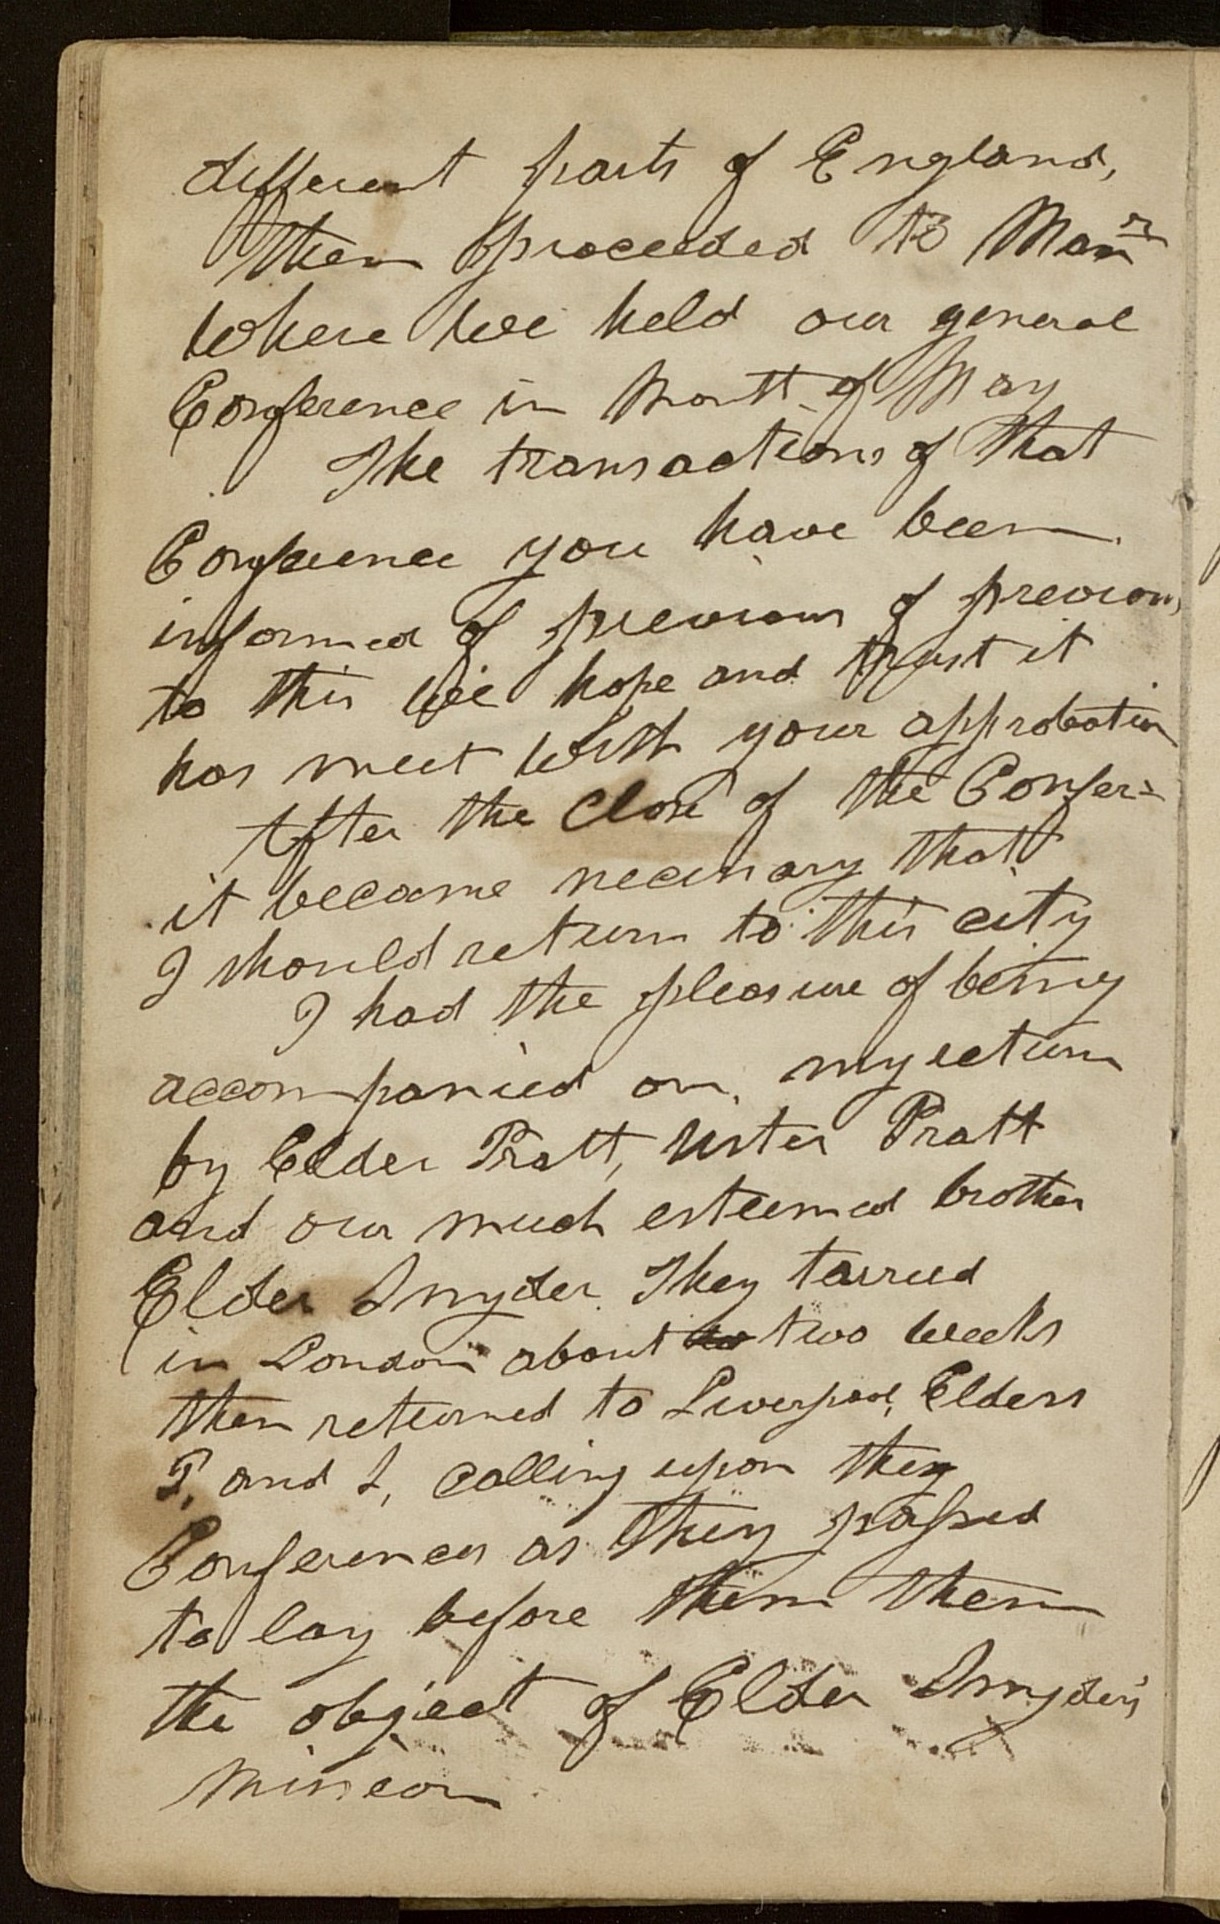 different parts of England,
then proceeded to Manr
where we held our general
Conference in Month of May
The transactions of that
Conference you have been
informed of previous of previous
to this we hope and trust it
has meet with your approbation
After the close of the Confer=
it became necessary that
I should return to this city
I had the pleasure of being
accompanied on my return
by Elder Pratt, sister Pratt
and our much esteemed brother
Elder Snyder. They tarried
in London about two weeks
then returned to Liverpool, Elders
P, and S, calling upon they
Conferences as they passed
to lay before them them
the object of Elder Snyders
mission